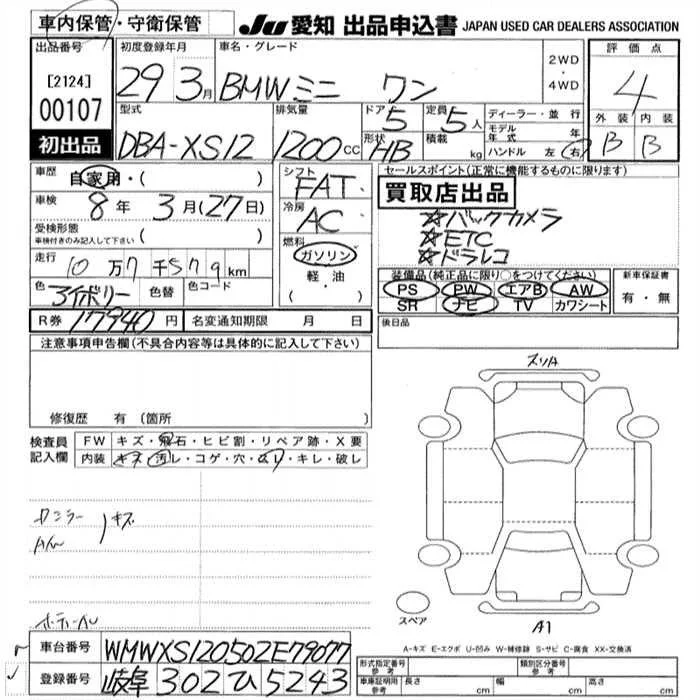 車内保管・守衛保管 JU 愛知 出品申込書 JAPAN USED CAR DEALERS ASSOCIATION
出品番号 初度登録年月 車名・グレード 2WD・4WD 評価点
[2124] 29 3月 BMWミニ ワン 4
00107 型式 排気量 ドア 5 定員 5人 ディーラー・並行 外装 内装
初出品 DBA-XS12 1200cc 形状 HB 積載 kg モデル年式 年 B B
ハンドル 左 右
車歴 自家用・( ) シフト FAT セールスポイント(正常に機能するものに限ります)
車検 8年 3月(27日) 冷房 AC 買取店出品
受検形態 ☆バックカメラ
車検付きのみ記入して下さい ( ) 燃料 ☆ETC
走行 10万7千579km ガソリン ☆ドラレコ
軽・油 装備品(純正品に限り○をつけてください) 新車保証書
色 アイボリー 色替 色コード ( ・ ) PS PW エアB AW 有・無
SR ナビ TV カワシート
R券 17940円 名変通知期限 月 日 後日品
注意事項申告欄(不具合内容等は具体的に記入して下さい)
修復歴 有(箇所
検査員記入欄 FW キズ・飛石・ヒビ割・リペア跡・X要
内装 キズ・汚レ・コゲ・穴・ムレ・キレ・破レ
スリA
キズ
スペア
A1
A-キズ E-エクボ U-凹み W-補修跡 S-サビ C-腐食 XX-交換済
車台番号 WMWXS120502E79077 形式指定番号 参考 類別区分番号 参考
登録番号 岐阜 302 ひ 5243 車庫証明用参考 長さ cm 幅 cm 高さ cm